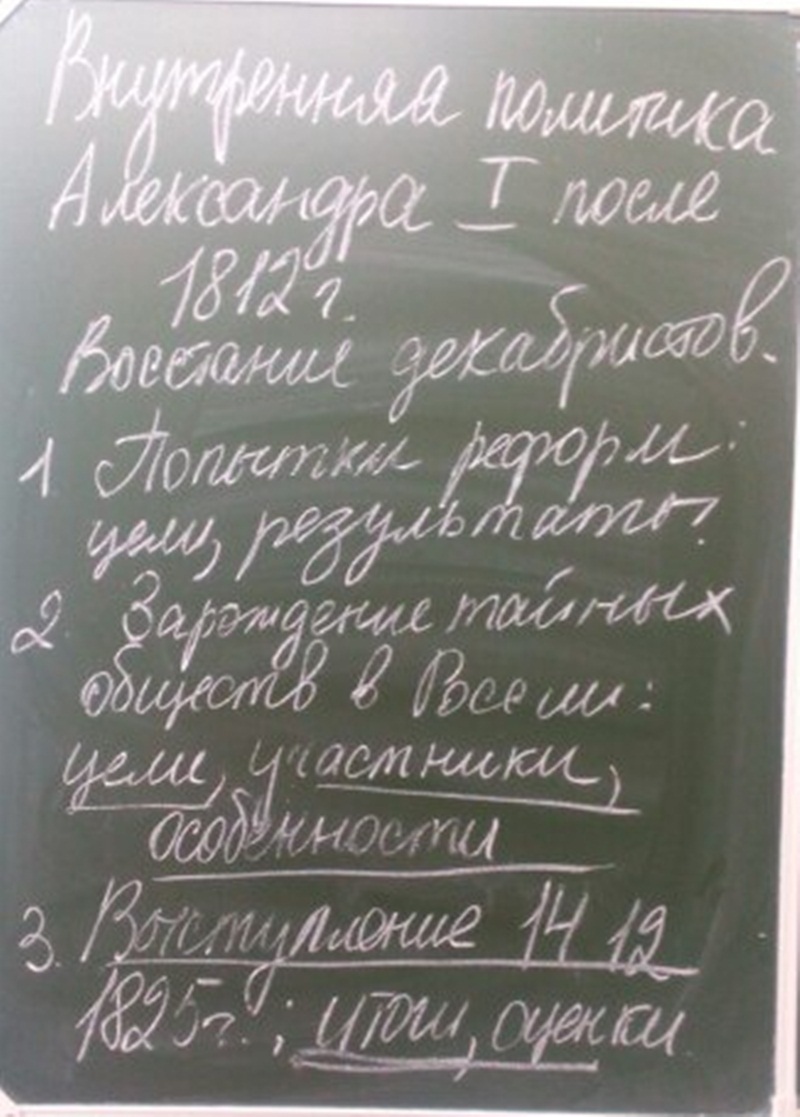 Внутренняя политика
Александра I после
1812 г.
Восстание декабристов.
1 Попытки реформ:
цели, результаты?
2. Зарождение тайных
обществ в России:
цели, участники,
особенности
3. Выступление 14 12
1825г.; итоги, оценки